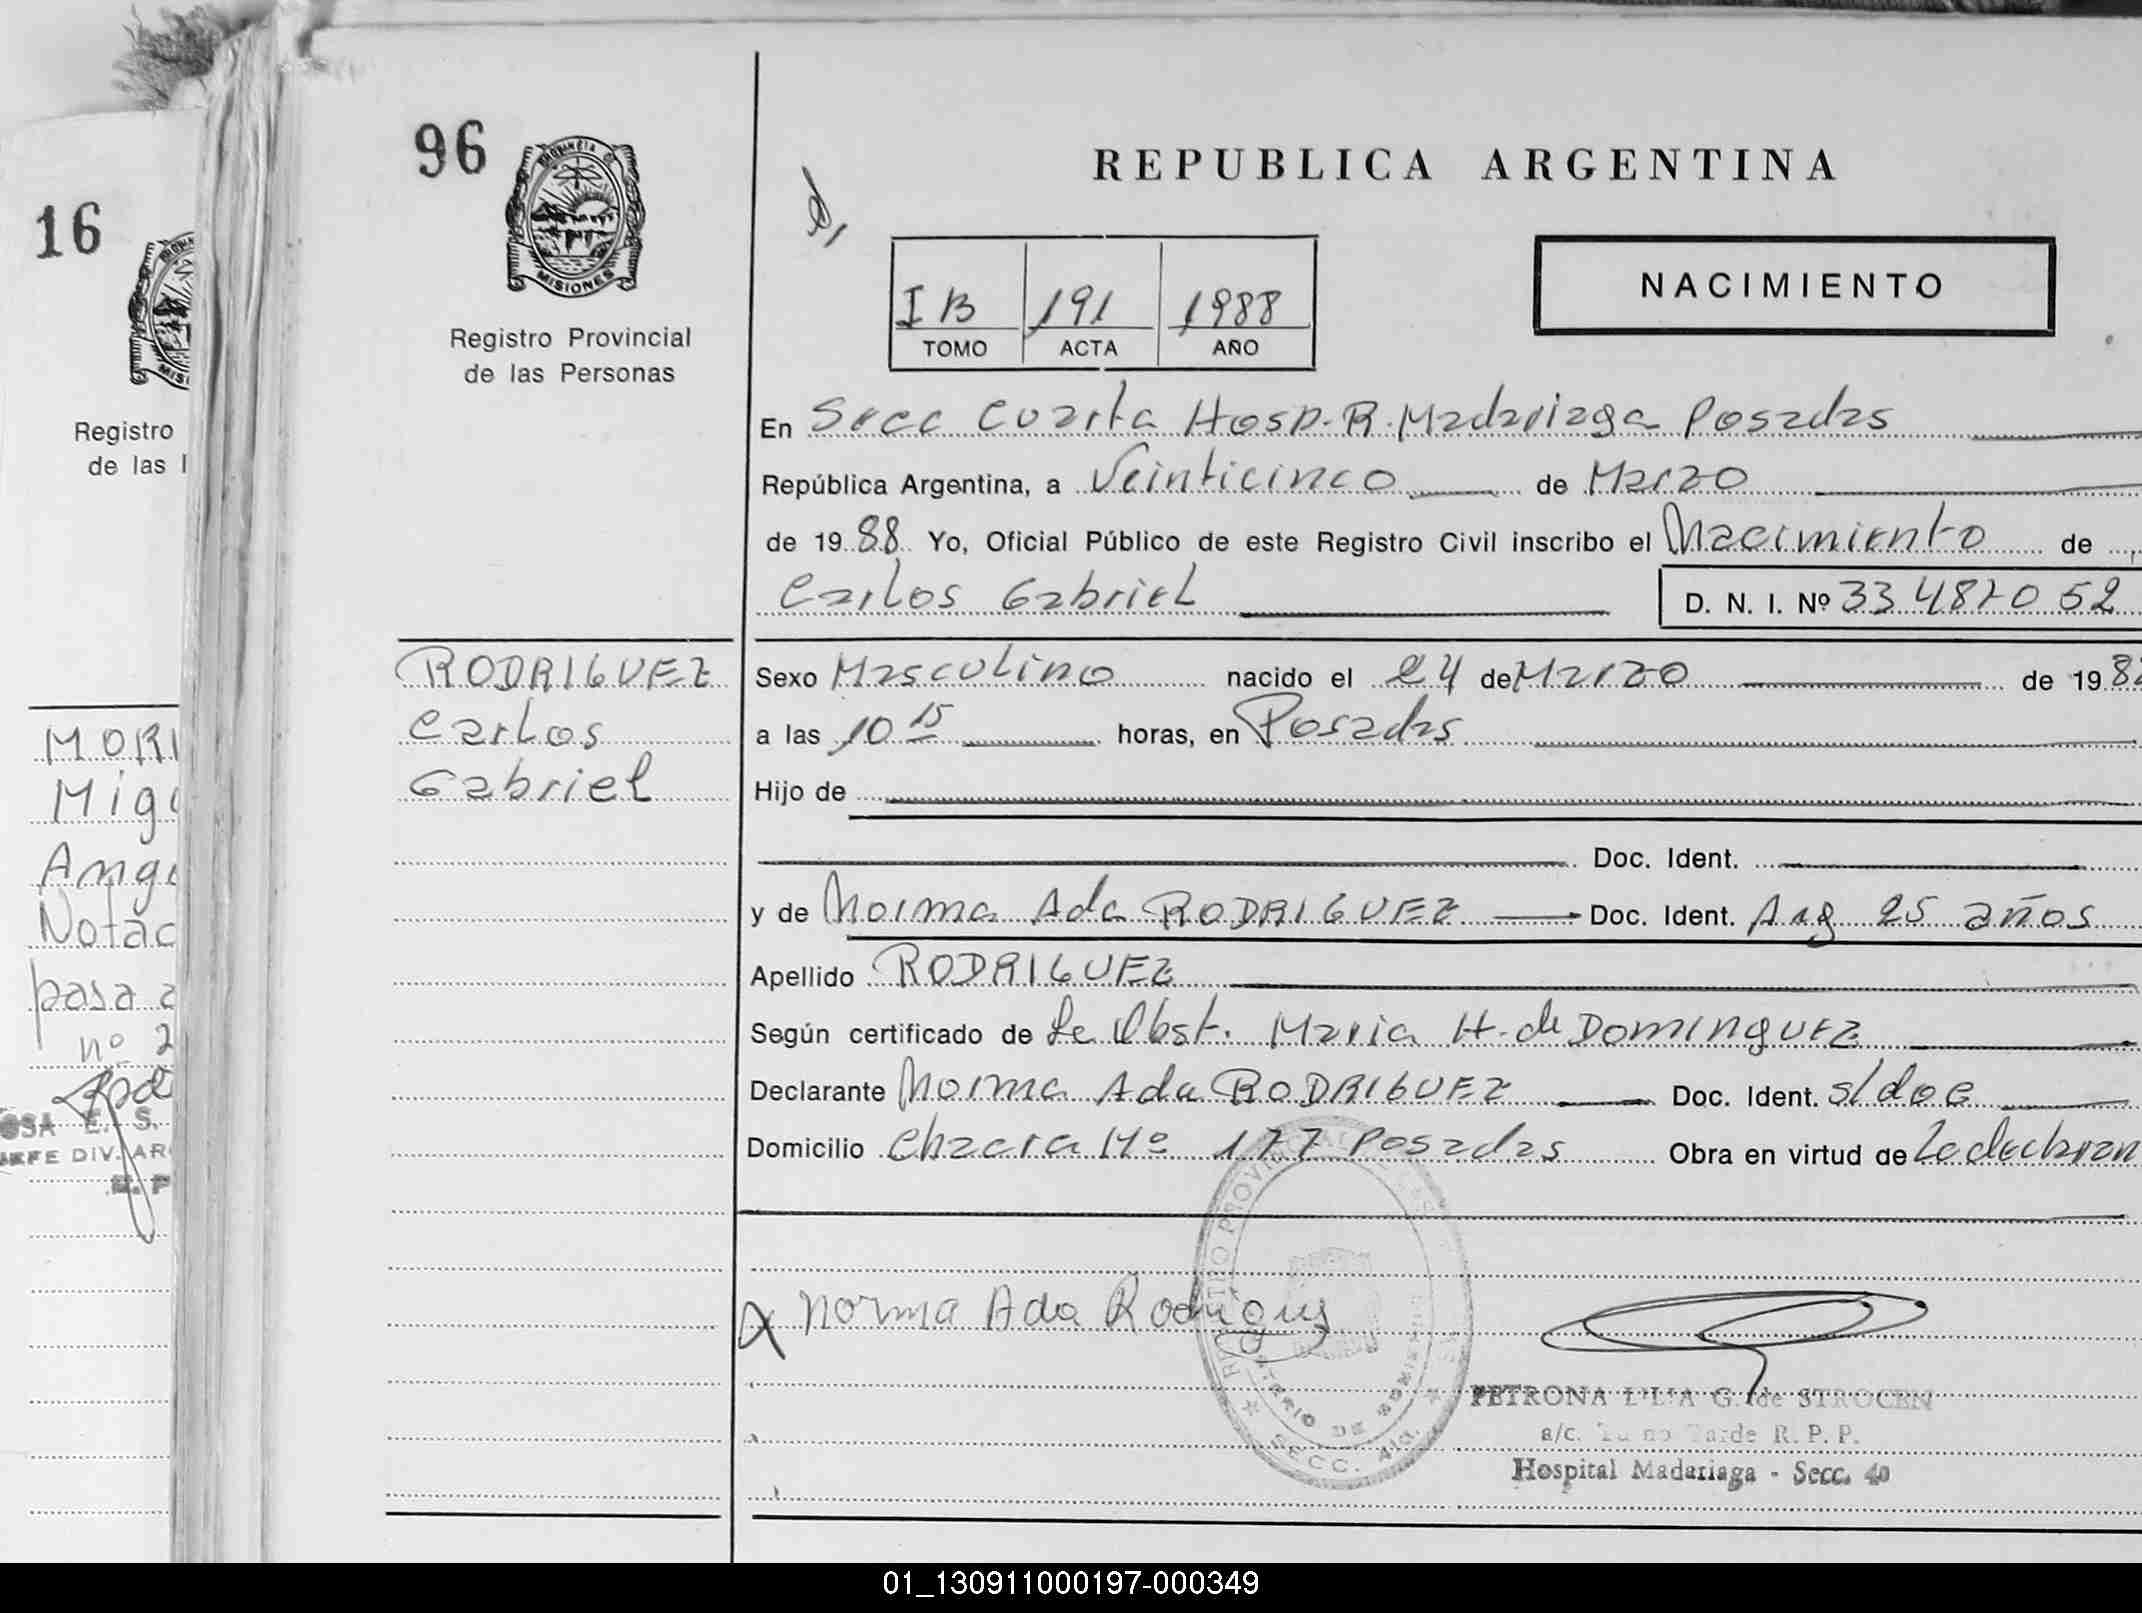 96
PROVINCIA DE
MISIONES
Registro Provincial
de las Personas
16
Registro
de las
MORI
Migu
Ange
Notac
pasa a
nº 2
OSA E. S.
JEFE DIV. AR
RODRIGUEZ
Carlos
Gabriel
REPUBLICA ARGENTINA
NACIMIENTO
I B 191 1988
TOMO ACTA AÑO
En Secc Cuarta Hosp. R. Madariaga Posadas
República Argentina, a Veinticinco de Marzo
de 19 88 Yo, Oficial Público de este Registro Civil inscribo el Nacimiento de
Carlos Gabriel D. N. I. Nº 33 487 0 52
Sexo Masculino nacido el 24 de Marzo de 19 88
a las 10 15 horas, en Posadas
Hijo de
Doc. Ident.
y de Norma Ada RODRIGUEZ Doc. Ident. Arg 25 años
Apellido RODRIGUEZ
Según certificado de la Obst. Maria H. de DOMINGUEZ
Declarante Norma Ada RODRIGUEZ Doc. Ident. s/doc
Domicilio Chacra Nº 177 Posadas Obra en virtud de la declaran
Norma Ada Rodrigues
SECC. 4ta.
PETRONA LILIA G. de STROCEN
a/c. Turno Tarde R. P. P.
Hospital Madariaga - Secc. 4a
01_130911000197-000349